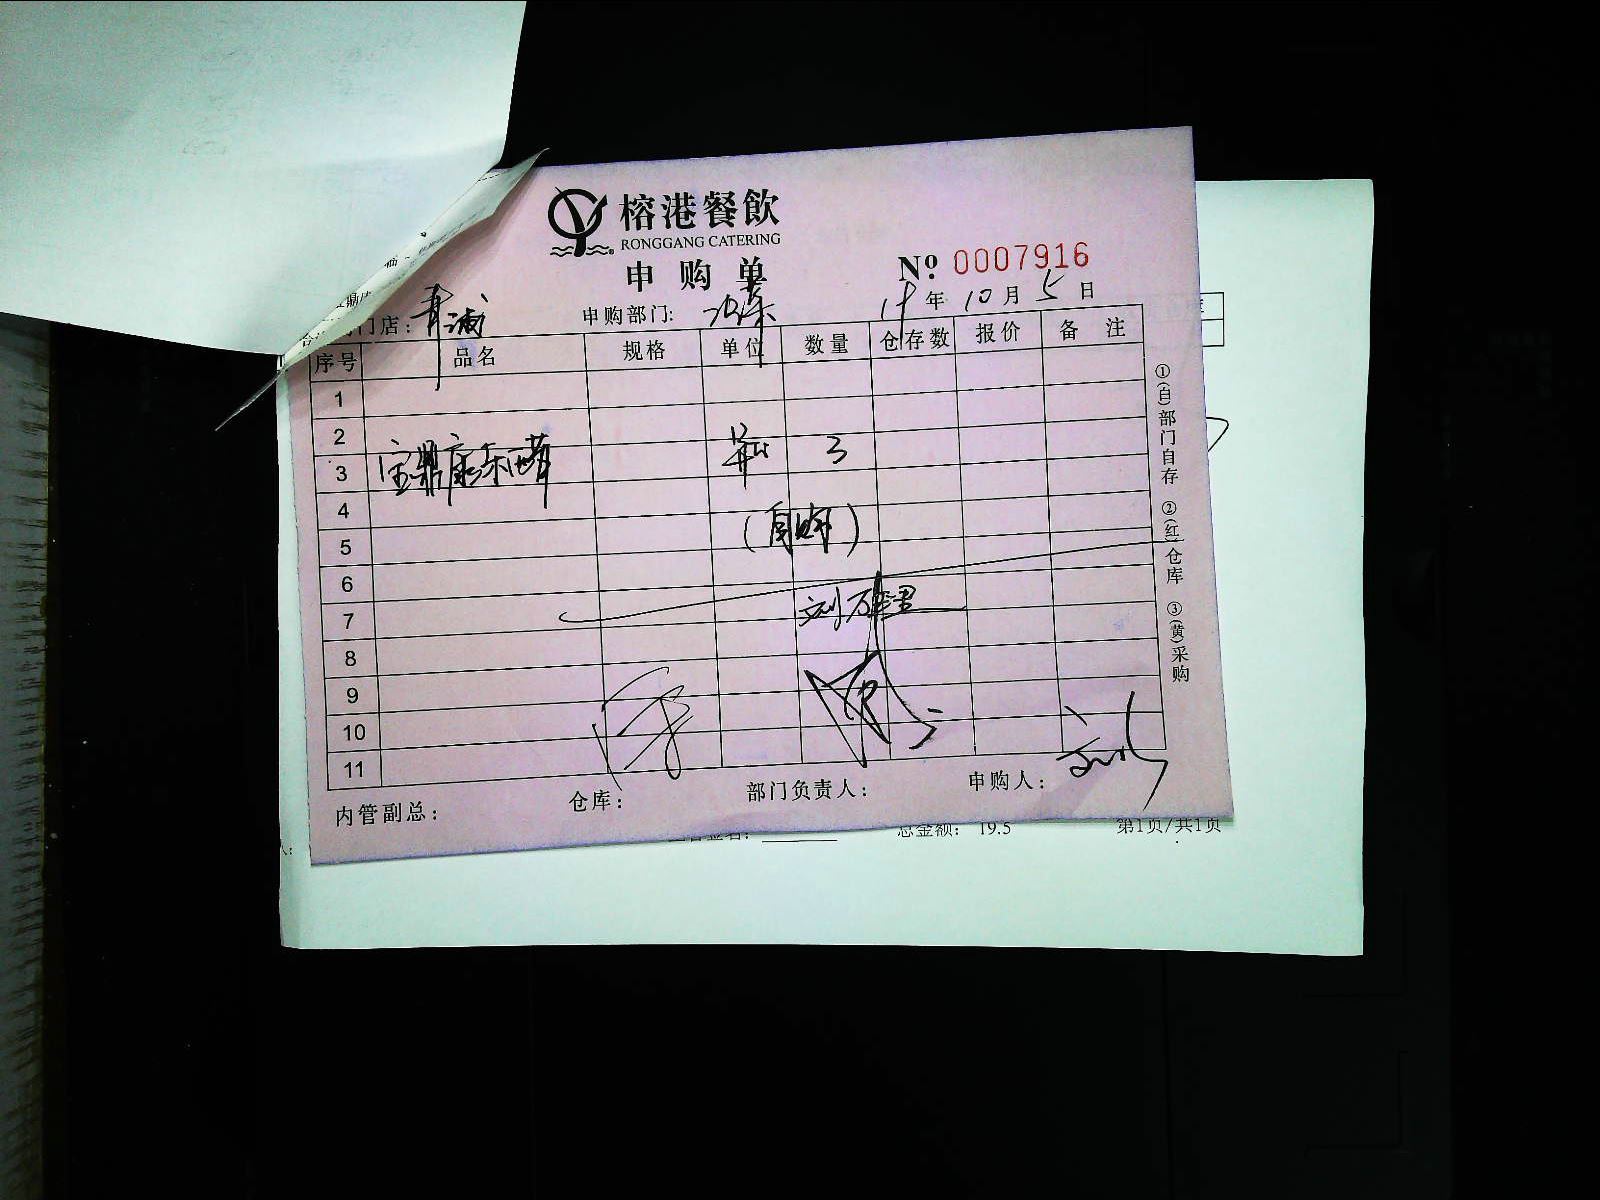 榕港餐飲
RONGGANG CATERING
申购单
Nº 0007916
门店：青浦 申购部门：凉菜 19年10月5日
序号 品名 规格 单位 数量 仓存数 报价 备注
1
2
3 宝鼎康乐醋 瓶 3
4
5 （自购）
6
7
8
9
10
11
内管副总： 仓库： 部门负责人： 申购人：
①(白)部门自存 ②(红)仓库 ③(黄)采购
总金额： 19.5 第1页/共1页